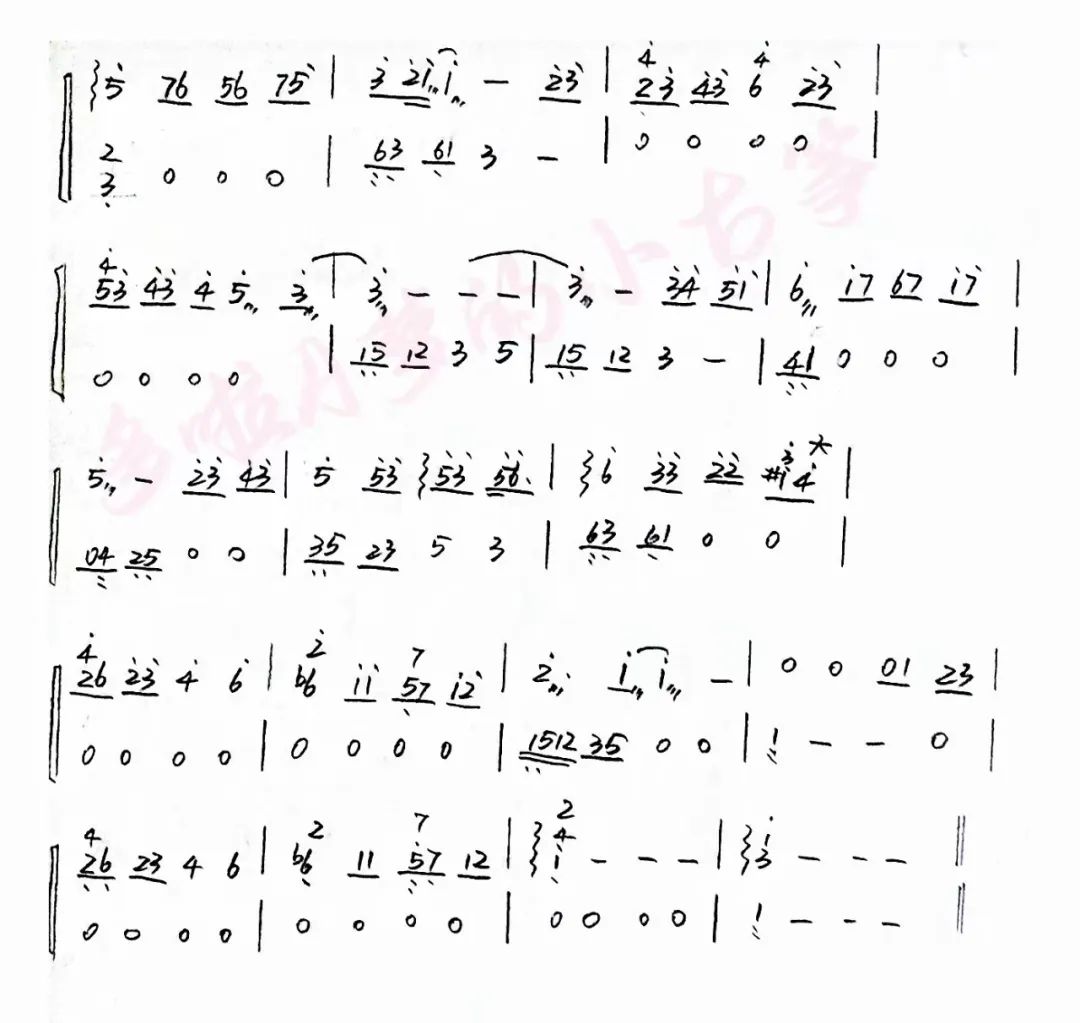 5 76 56 75 | 3 21 1 – 23 | 4 23 43 4 6 23 |
2 3 0 0 0 | 63 61 3 – | 0 0 0 0 |
4 53 43 4 5 3 | 3 – – – | 3 – 34 51 | 6 17 67 17 |
0 0 0 0 | 15 12 3 5 | 15 12 3 – | 41 0 0 0 |
5 – 23 43 | 5 53 53 56. | 6 33 22 #1 3 4 |
04 25 0 0 | 35 23 5 3 | 63 61 0 0 |
4 26 23 4 6 | 2 b6 11 7 57 12 | 2 1 1 – | 0 0 01 23 |
0 0 0 0 | 0 0 0 0 | 1512 35 0 0 | 1 – – 0 |
4 26 23 4 6 | 2 b6 11 7 57 12 | 2 4 1 – – – | 1 3 – – – ‖
0 0 0 0 | 0 0 0 0 | 0 0 0 0 | 1 – – – ‖
多啦小梦的小古筝